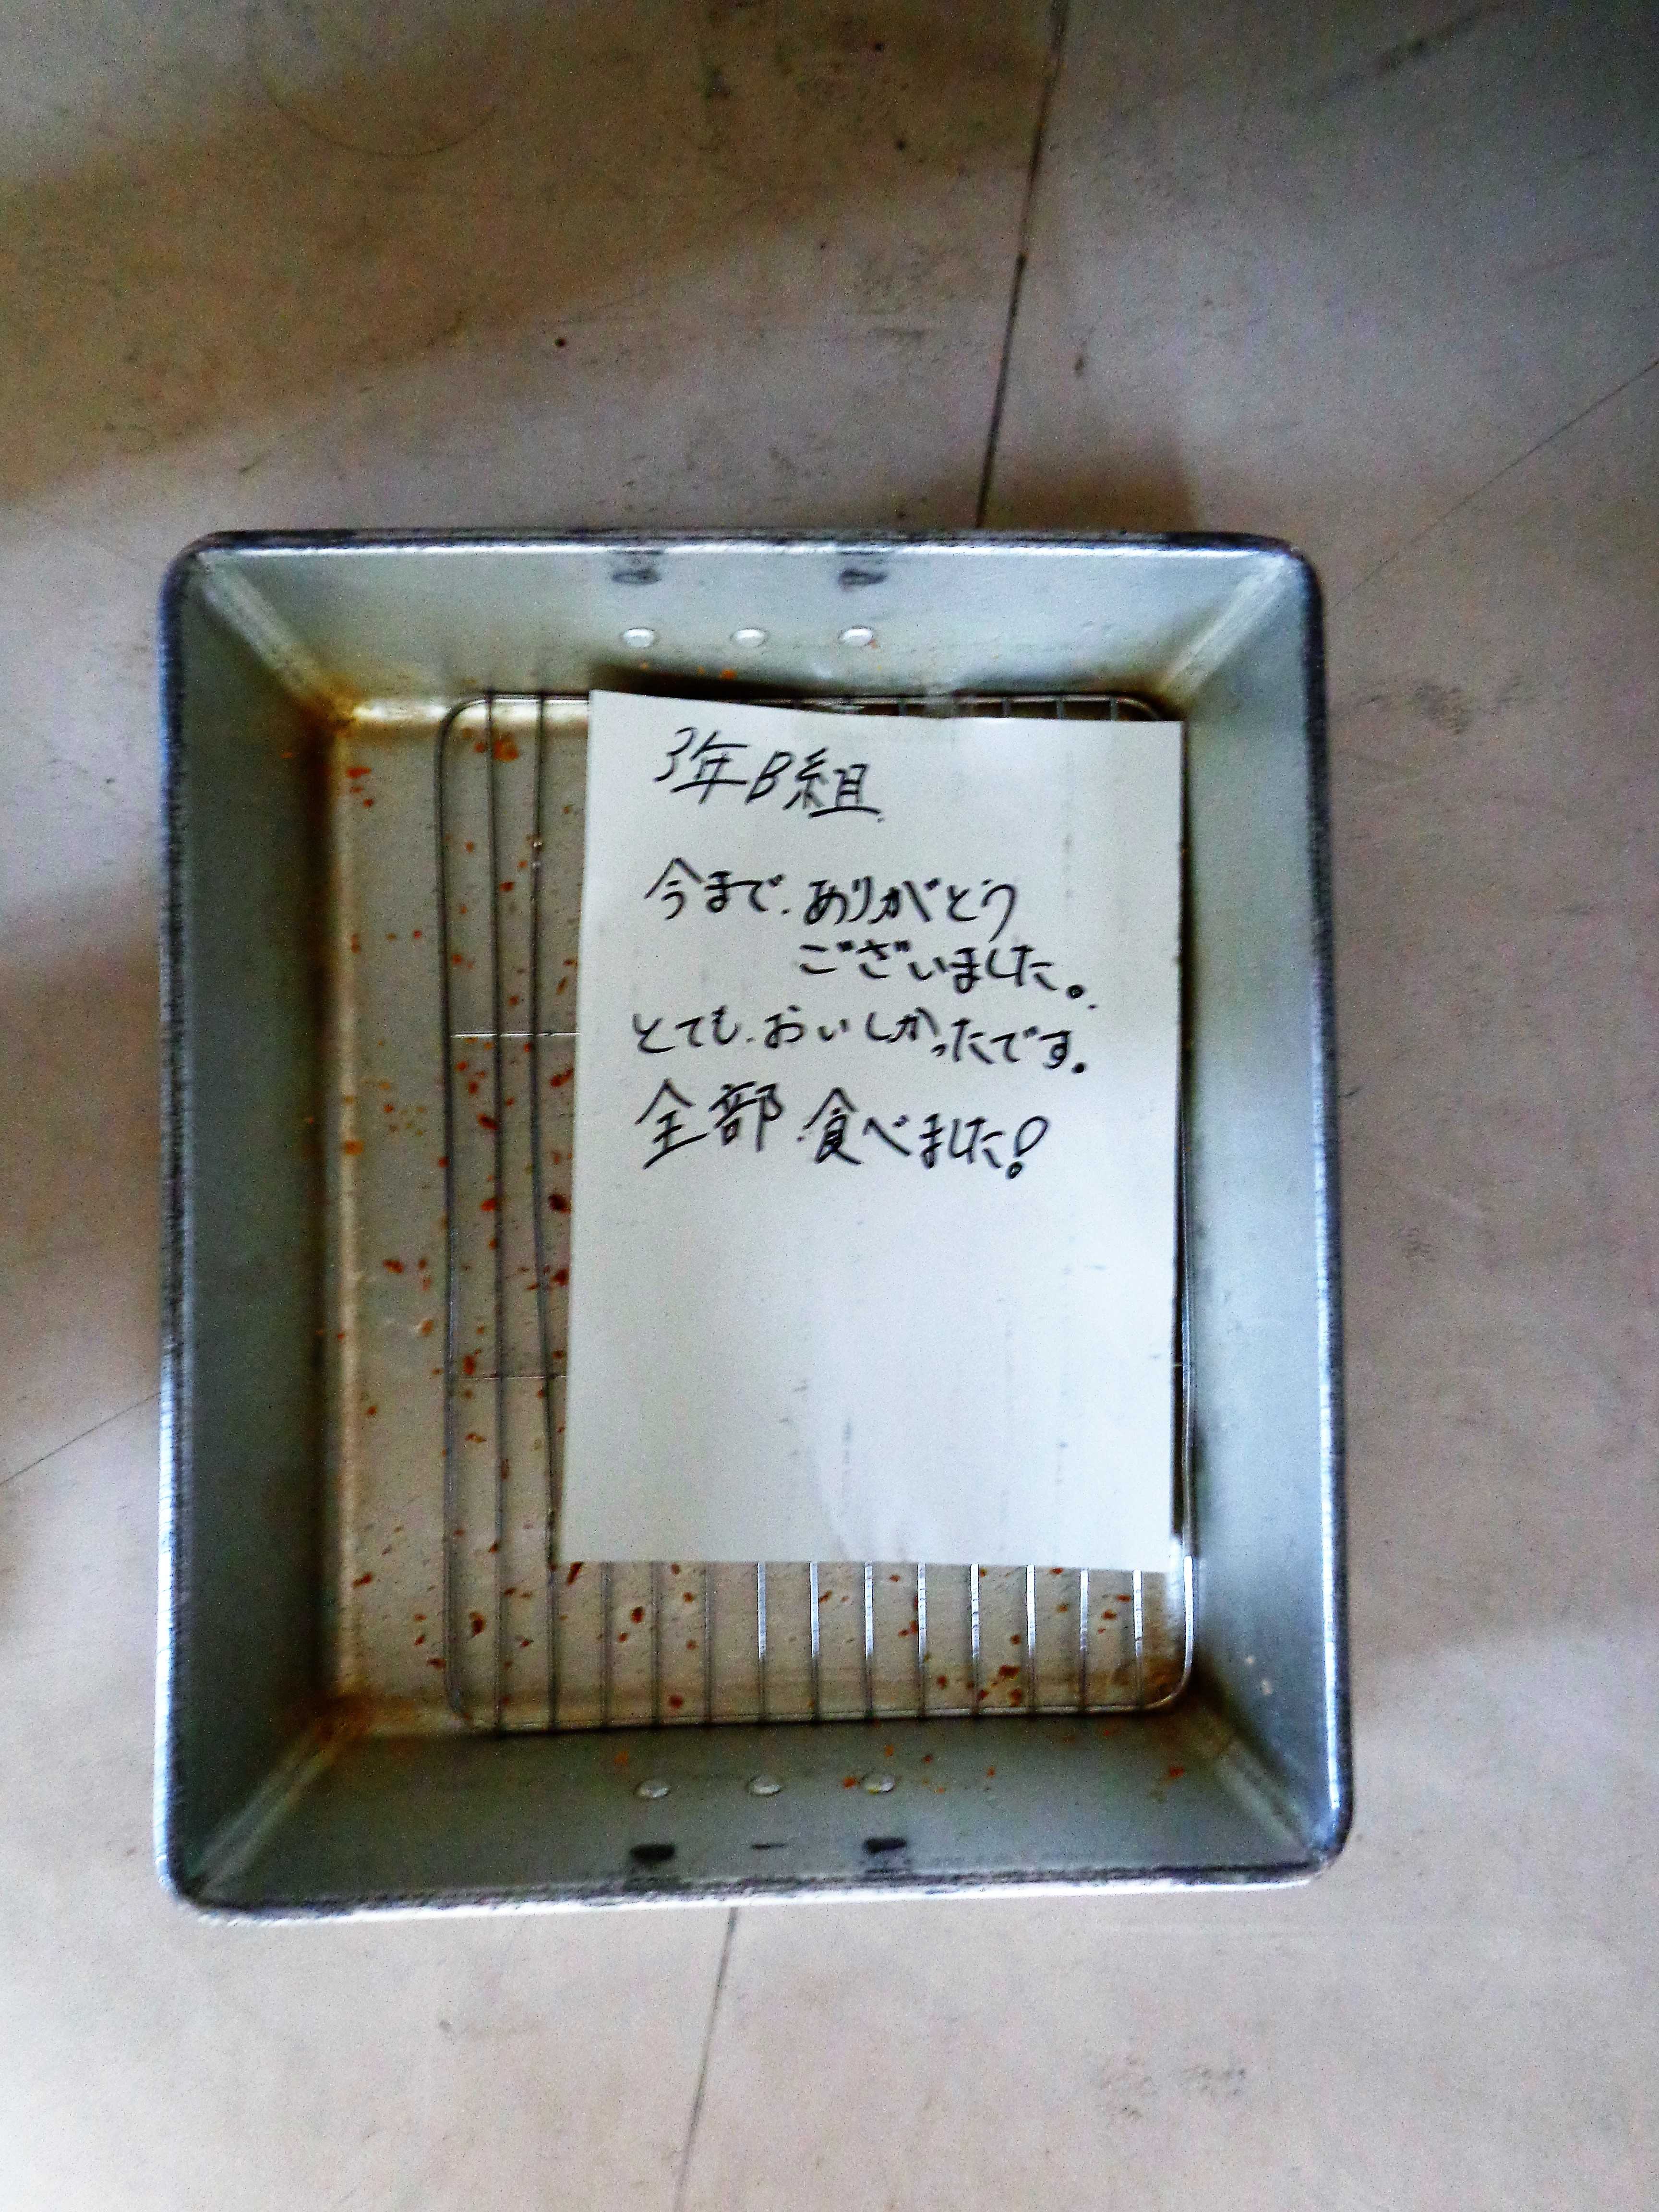 3年B組
今まで.ありがとう
ございました。
とても.おいしかったです。
全部.食べました!